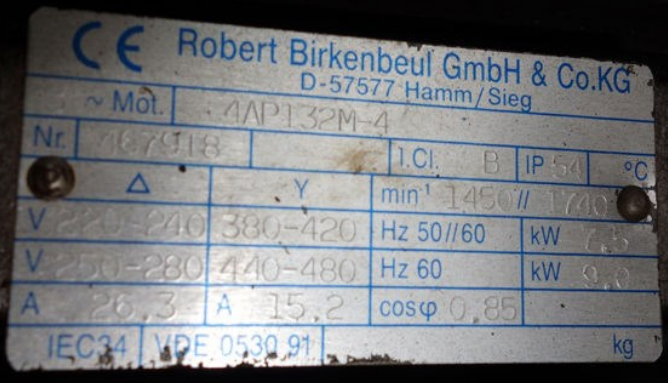 CE Robert Birkenbeul GmbH & Co.KG
D-57577 Hamm/Sieg
~ Mot. 4AP132M-4
Nr. 467918 I.Cl. B IP 54 °C
Δ Y min⁻¹ 1450// 1740
V 220-240 380-420 Hz 50//60 kW 7.5
V 250-280 440-480 Hz 60 kW 9.0
A 26.3 A 15.2 cosφ 0.85
IEC34 VDE 0530 91 kg